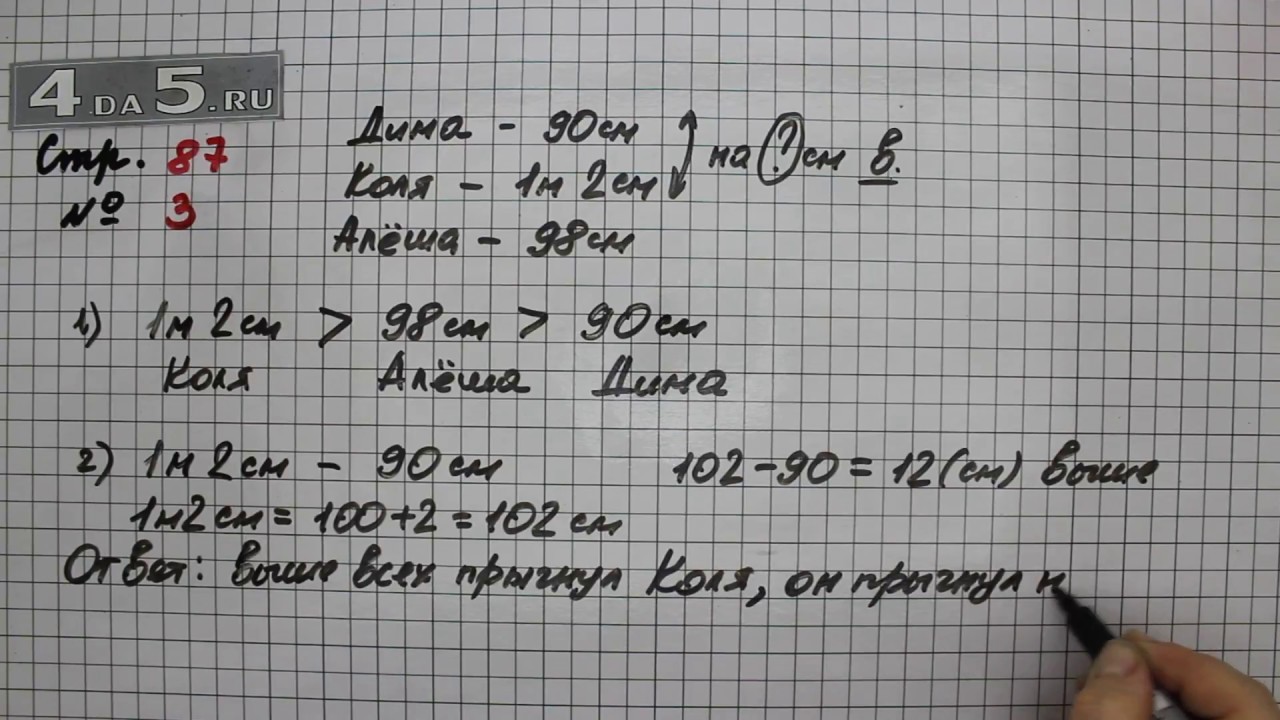 4DA5.RU
Стр. 87
№ 3
Дима - 90см
Коля - 1м 2см
на ? см в.
Алёша - 98см
1) 1м 2см > 98см > 90см
Коля Алёша Дима
2) 1м 2см - 90см 102-90=12(см) выше
1м2см = 100+2 = 102см
Ответ: выше всех прыгнул Коля, он прыгнул н